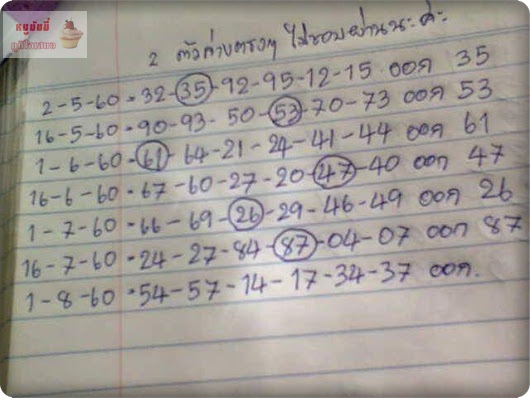 หมูซัยมี่
2 ตัวล่างตรงๆ ไม่ชอบผ่านนะ ค่ะ
2-5-60=32-35-92-95-12-15 ออก 35
16-5-60=90-93-50-53-70-73 ออก 53
1-6-60=61-64-21-24-41-44 ออก 61
16-6-60=67-60-27-20-47-40 ออก 47
1-7-60=66-69-26-29-46-49 ออก 26
16-7-60=24-27-84-87-04-07 ออก 87
1-8-60=54-57-14-17-34-37 ออก.